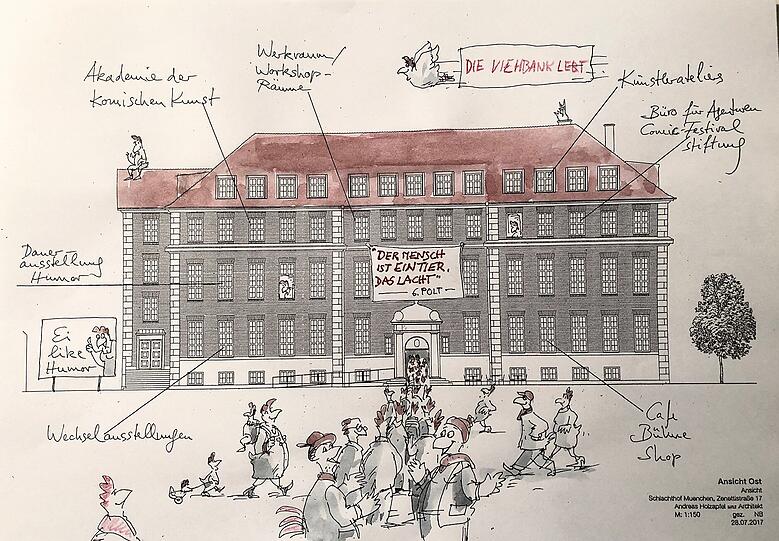 Werkraum/
Workshop-
Räume
DIE VIEHBANK LEBT
Akademie der
komischen Kunst
Künstlerateliers
Büro für Agenturen
Comic-Festival
stiftung
"DER MENSCH
IST EIN TIER,
DAS LACHT"
— G. POLT —
Dauer
ausstellung
Humor
Ei
like
Humor
Wechselausstellungen
Cafe
Bühne
Shop
Ansicht Ost
Ansicht
Schlachthof Muenchen, Zenettistraße 17
Andreas Holzapfel Architekt
M: 1:150 gez. NB
28.07.2017